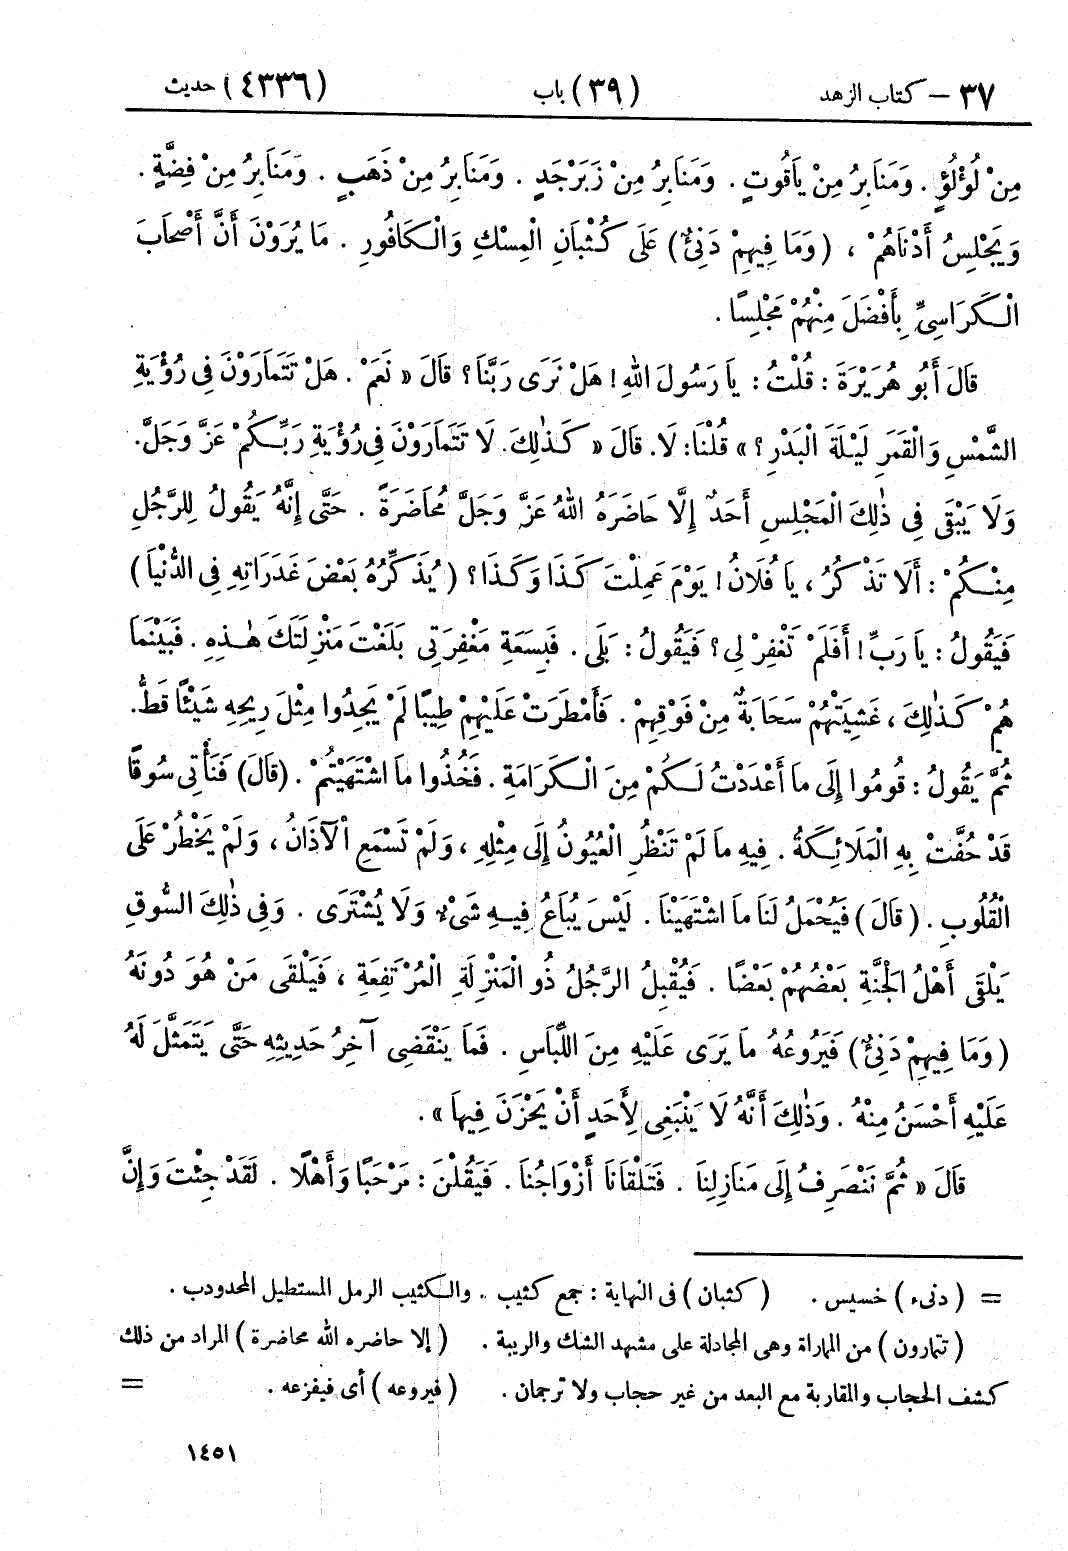 ٣٧ – كتاب الزهد (٣٩) باب (٤٣٣٦) حديث
مِنْ لُؤْلُؤٍ . وَمَنَابِرُ مِنْ يَاقُوتٍ . وَمَنَابِرُ مِنْ زَبَرْجَدٍ . وَمَنَابِرُ مِنْ ذَهَبٍ . وَمَنَابِرُ مِنْ فِضَّةٍ .
وَيَجْلِسُ أَدْنَاهُمْ ، ( وَمَا فِيهِمْ دَنِىءٌ ) عَلَى كُثْبَانِ الْمِسْكِ وَالْكَافُورِ . مَا يُرَوْنَ أَنَّ أَصْحَابَ
الْكَرَاسِىِّ بِأَفْضَلَ مِنْهُمْ مَجْلِسًا .
قَالَ أَبُو هُرَيْرَةَ : قُلْتُ : يَا رَسُولَ اللهِ ! هَلْ نَرَى رَبَّنَا ؟ قَالَ « نَعَمْ . هَلْ تَتَمَارَوْنَ فِى رُؤْيَةِ
الشَّمْسِ وَالْقَمَرِ لَيْلَةَ الْبَدْرِ ؟ » قُلْنَا : لَا. قَالَ « كَذٰلِكَ. لَا تَتَمَارَوْنَ فِى رُؤْيَةِ رَبِّكُمْ عَزَّ وَجَلَّ.
وَلَا يَبْقَى فِى ذٰلِكَ الْمَجْلِسِ أَحَدٌ إِلَّا حَاضَرَهُ اللهُ عَزَّ وَجَلَّ مُحَاضَرَةً . حَتَّى إِنَّهُ يَقُولُ لِلرَّجُلِ
مِنْكُمْ : أَلَا تَذْكُرُ ، يَا فُلَانُ ! يَوْمَ عَمِلْتَ كَذَا وَكَذَا ؟ ( يُذَكِّرُهُ بَعْضَ غَدَرَاتِهِ فِى الدُّنْيَا )
فَيَقُولُ : يَا رَبِّ ! أَفَلَمْ تَغْفِرْ لِى ؟ فَيَقُولُ : بَلَى . فَبِسَعَةِ مَغْفِرَتِى بَلَغْتَ مَنْزِلَتَكَ هٰذِهِ . فَبَيْنَمَا
هُمْ كَذٰلِكَ ، غَشِيَتْهُمْ سَحَابَةٌ مِنْ فَوْقِهِمْ . فَأَمْطَرَتْ عَلَيْهِمْ طِيبًا لَمْ يَجِدُوا مِثْلَ رِيحِهِ شَيْئًا قَطُّ.
ثُمَّ يَقُولُ : قُومُوا إِلَى مَا أَعْدَدْتُ لَكُمْ مِنَ الْكَرَامَةِ . فَخُذُوا مَا اشْتَهَيْتُمْ . (قَالَ) فَنَأْتِى سُوقًا
قَدْ حُفَّتْ بِهِ الْمَلَائِكَةُ . فِيهِ مَا لَمْ تَنْظُرِ الْعُيُونُ إِلَى مِثْلِهِ ، وَلَمْ تَسْمَعِ الْآذَانُ ، وَلَمْ يَخْطُرْ عَلَى
الْقُلُوبِ . ( قَالَ ) فَيُحْمَلُ لَنَا مَا اشْتَهَيْنَا . لَيْسَ يُبَاعُ فِيهِ شَىْءٌ وَلَا يُشْتَرَى . وَفِى ذٰلِكَ السُّوقِ
يَلْقَى أَهْلُ الْجَنَّةِ بَعْضُهُمْ بَعْضًا . فَيُقْبِلُ الرَّجُلُ ذُو الْمَنْزِلَةِ الْمُرْتَفِعَةِ ، فَيَلْقَى مَنْ هُوَ دُونَهُ
( وَمَا فِيهِمْ دَنِىءٌ ) فَيَرُوعُهُ مَا يَرَى عَلَيْهِ مِنَ اللِّبَاسِ . فَمَا يَنْقَضِى آخِرُ حَدِيثِهِ حَتَّى يَتَمَثَّلَ لَهُ
عَلَيْهِ أَحْسَنُ مِنْهُ . وَذٰلِكَ أَنَّهُ لَا يَنْبَغِى لِأَحَدٍ أَنْ يَحْزَنَ فِيهَا » .
قَالَ « ثُمَّ نَنْصَرِفُ إِلَى مَنَازِلِنَا . فَتَلْقَانَا أَزْوَاجُنَا . فَيَقُلْنَ : مَرْحَبًا وَأَهْلًا . لَقَدْ جِئْتَ وَإِنَّ
= ( دنىء ) خسيس . ( كثبان ) فى النهاية : جمع كثيب . والكثيب الرمل المستطيل المحدودب .
( تتمارون ) من المماراة وهى المجادلة على مشهد الشك والريبة . ( إلا حاضره الله محاضرة ) المراد من ذلك
كشف الحجاب والمقاربة مع البعد من غير حجاب ولا ترجمان . ( فيروعه ) أى فيفزعه . =
١٤٥١